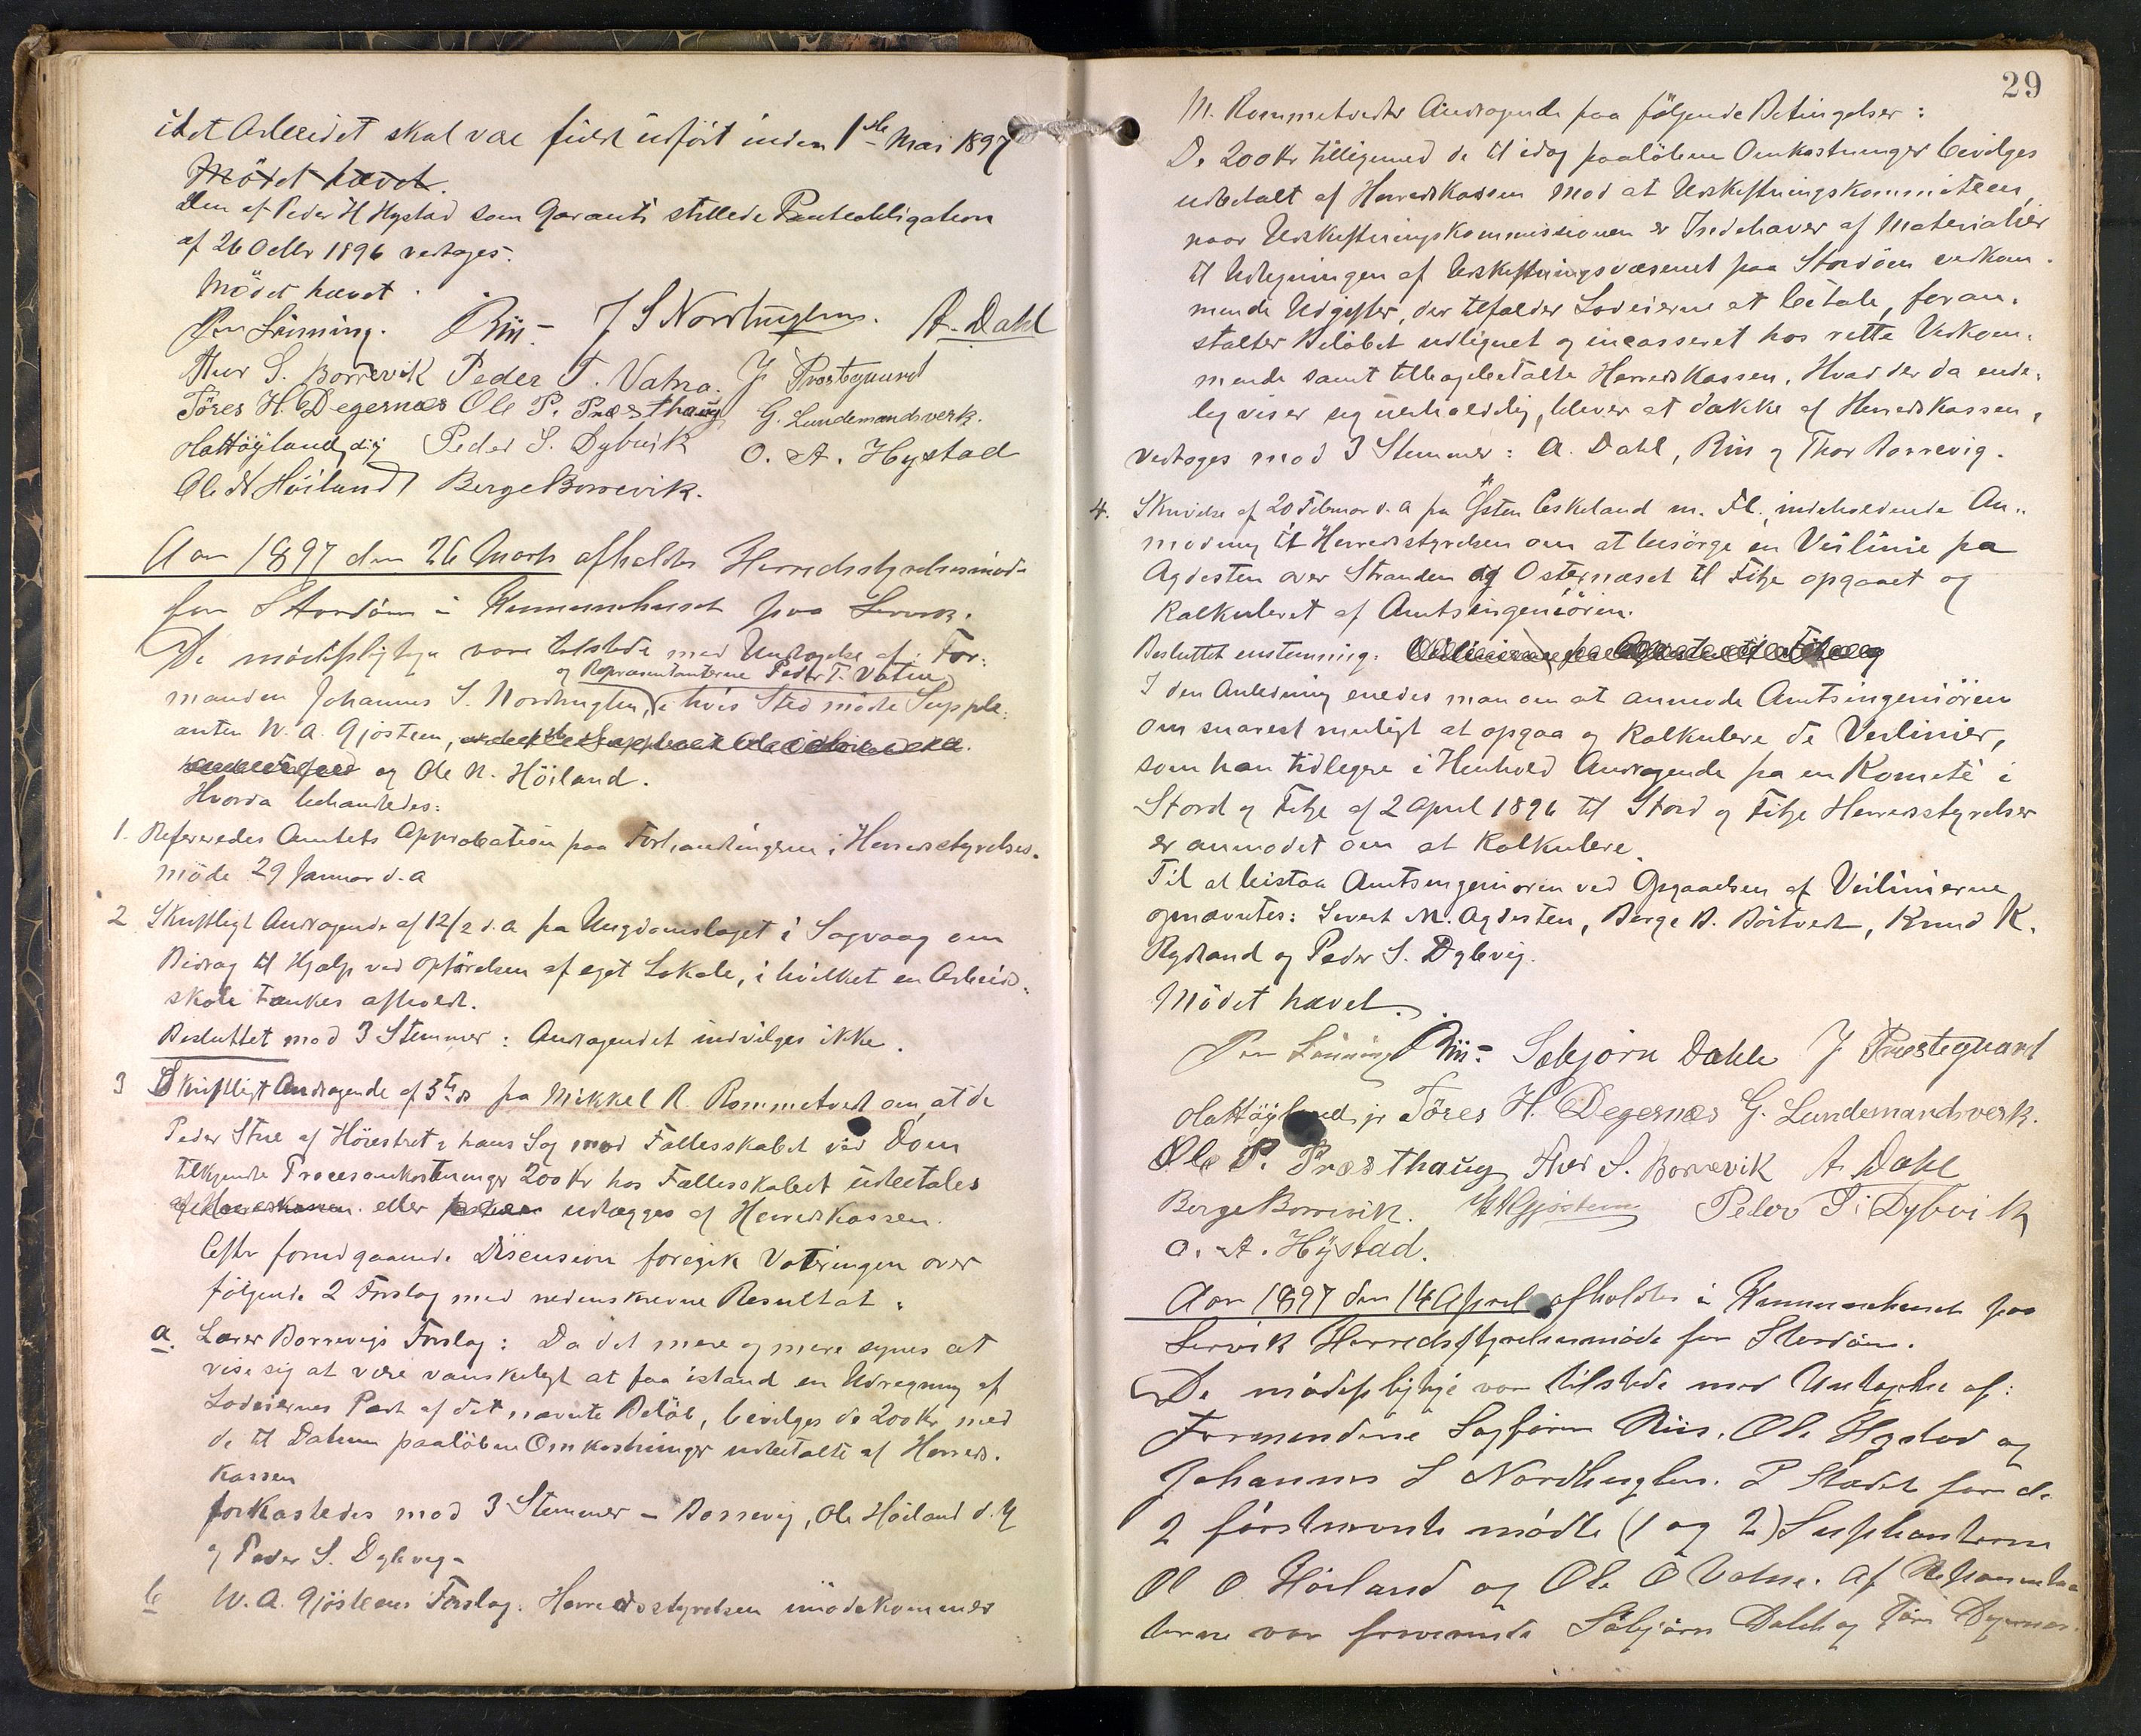 idet Arbeidet skal være fuldt udført inden 1ste Mai 1897
Mödet hævet.
Den af Peder H Hystad som Garanti stillede Pantobligation
af 26 Octbr 1896 vedtages.
Mödet hævet.
Per Lönning. Riis- J S Nordhuglen. A. Dahl
Thor S. Borrevik Peder T. Vatna. J Prestegaard
Töres H. Degernæs Ole P. Præsthaug G. Lundemandsverk.
Ola Höyland, dy Peder S. Dybvik O. A. Hystad
Ole N Höiland Berge Borrevik.
Aar 1897 den 26 Marts afholdtes Herredsstyrelsesmöde
for Stordöen i Kommunehuset paa Lervik.
De mödepligtige vare tilstede med Undtagelse af: For-
og Repræsentanterne Peder T. Vatne
manden Johannes S. Nordhuglen, i hvis Sted mödte Supple-
anten W. A. Gjöstein,
og Ole N. Höiland.
Hvorda behandledes:
1. Refereredes Amtets Approbation paa Forhandlingerne i Herredsstyrelses-
möde 29 Januar d. a
2 Skriftligt Andragende af 12/2 d. a fra Ungdomslaget i Sagvaag om
Bidrag til Hjælp ved Opförelsen af eget Lokale, i hvilket en Arbeids-
skole tænkes afholdt.
Besluttet mod 3 Stemmer: Andragendet indvilges ikke.
3 Skriftligt Andragende af 3die ds fra Mikkel R. Rommetvedt om, at de
Peder Stue af Höiesteret i hans Sag mod Fællesskabet ved Dom
tilkjendte Procesomkostninger 200 Kr hos Fællesskabet udbetales
af Herredskassen eller udlægges af Herredskassen.
Efter forudgaaende Discusion foregik Voteringen over
følgende 2 Forslag med nedenskrevne Resultat.
a. Lærer Borrevigs Forslag: Da det mere og mere synes at
vise sig at være vanskeligt at faa istand en Udregning af
Lodeiernes Part af det nævnte Belöb, bevilges de 200 Kr med
de til Datum paalöbne Omkostninger udbetalte af Herreds-
kassen
forkastedes mod 3 Stemmer - Borrevig, Ole Höiland d. y
og Peder S. Dybvig -
b W. A. Gjösteens Forslag. Herredsstyrelsen imödekommer
29
M. Rommetvedts Andragende paa fölgende Betingelser:
De 200 Kr tilligemed de til idag paalöbne Omkostninger bevilges
udbetalt af Herredskassen mod at Udskiftningskommiteen,
naar Udskiftningskommissionen er Indehaver af Materialier
til Udregningen af Udskiftningsvæsenet paa Stordöen vedkom-
mende Udgifter, der tilfalder Lodeierne at betale, foran-
stalter Belöbet udlignet og incasseret hos rette Vedkom-
mende samt tilbagebetalte Herredskassen. Hvad der da ende-
lig viser sig uerholdelig, bliver at dække af Herredskassen,
vedtages mod 3 Stemmer: A. Dahl, Riis og Thor Borrevig.
4. Skrivelse af 20 Februar d. a fra Östen Eskeland m. Fl., indeholdende An-
modning til Herredsstyrelsen om at besörge en Veilinie fra
Agdesten over Stranden og Osternæset til Fitje opgaaet og
kalkuleret af Amtsingeniören.
Besluttet enstemmig:
I den Anledning enedes man om at anmode Amtsingeniören
om snarest muligt at opgaa og kalkulere de Veilinier,
som han tidlegere i Henhold Andragende fra en Komité i
Stord og Fitje af 2 April 1896 til Stord og Fitje Herredsstyrelser
er anmodet om at kalkulere.
Til at bistaa Amtsingeniören ved Opgaaelsen af Veilinierne
opnævntes: Sivert M. Agdesten, Berge B. Börtveit, Knud K.
Rydland og Peder S. Dybvig.
Mödet hævet.
Per Lönning Riis- Sebjörn Dahle J Prestegaard
Ola Höyland jr Töres H. Degernæs G. Lundemandsverk.
Ole P. Præsthaug Thor S. Borrevik A Dahl
Berge Borrevik. W A Gjöstein Peder S. Dybvik
O. A. Hystad.
Aar 1897 den 14 April afholdtes i Kommunehuset paa
Lervik Herredsstyrelsesmöde for Stordöen.
De mödepligtige var tilstede med Undtagelse af:
Formendene Sagförer Riis, Ole Hystad og
Johannes S Nordhuglen. I Stedet for de
2 förstnævnte mödte (1 og 2) Supleanterne
Ol O Höiland og Ole O Vatne. Af Repræsentan
terne var fraværende Sebjörn Dahle og Töres Degernæs.